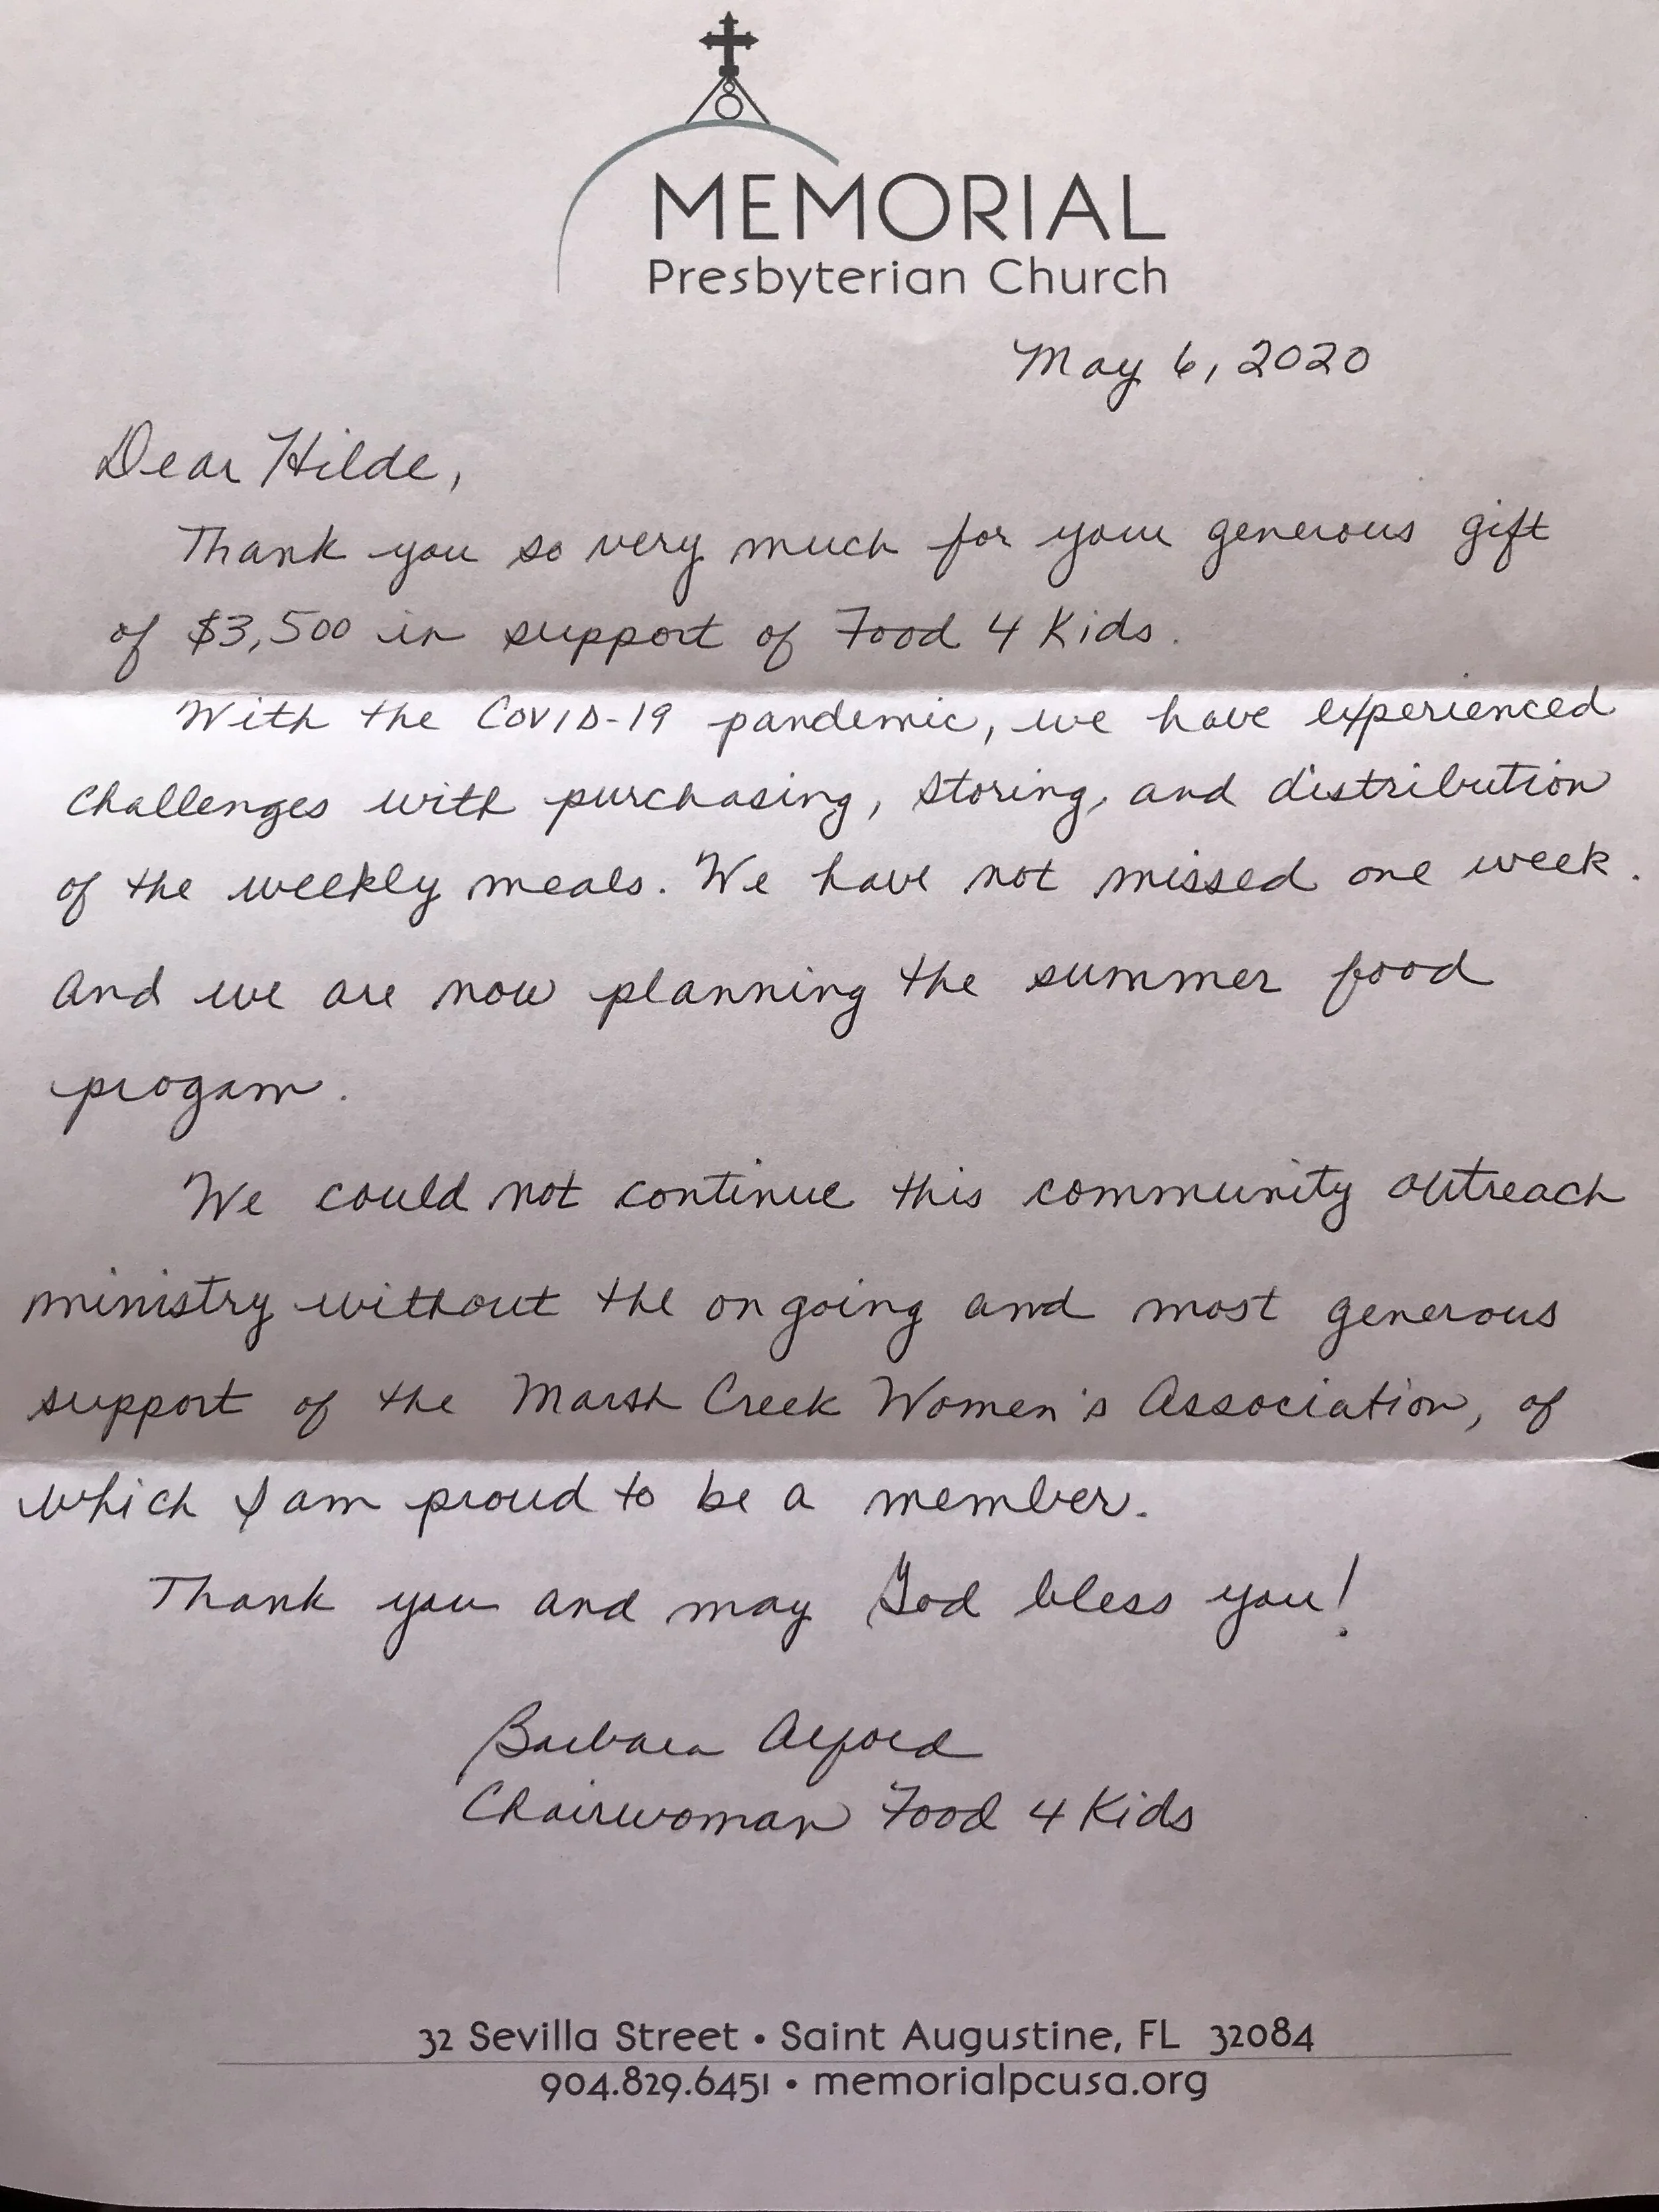 MEMORIAL
Presbyterian Church
May 6, 2020
Dear Hilde,
Thank you so very much for your generous gift
of $3,500 in support of Food 4 Kids.
With the COVID-19 pandemic, we have experienced
challenges with purchasing, storing, and distribution
of the weekly meals. We have not missed one week.
And we are now planning the summer food
progam.
We could not continue this community outreach
ministry without the ongoing and most generous
support of the Marsh Creek Women's Association, of
which I am proud to be a member.
Thank you and may God bless you!
Barbara Alford
Chairwoman Food 4 Kids
32 Sevilla Street • Saint Augustine, FL 32084
904.829.6451 • memorialpcusa.org